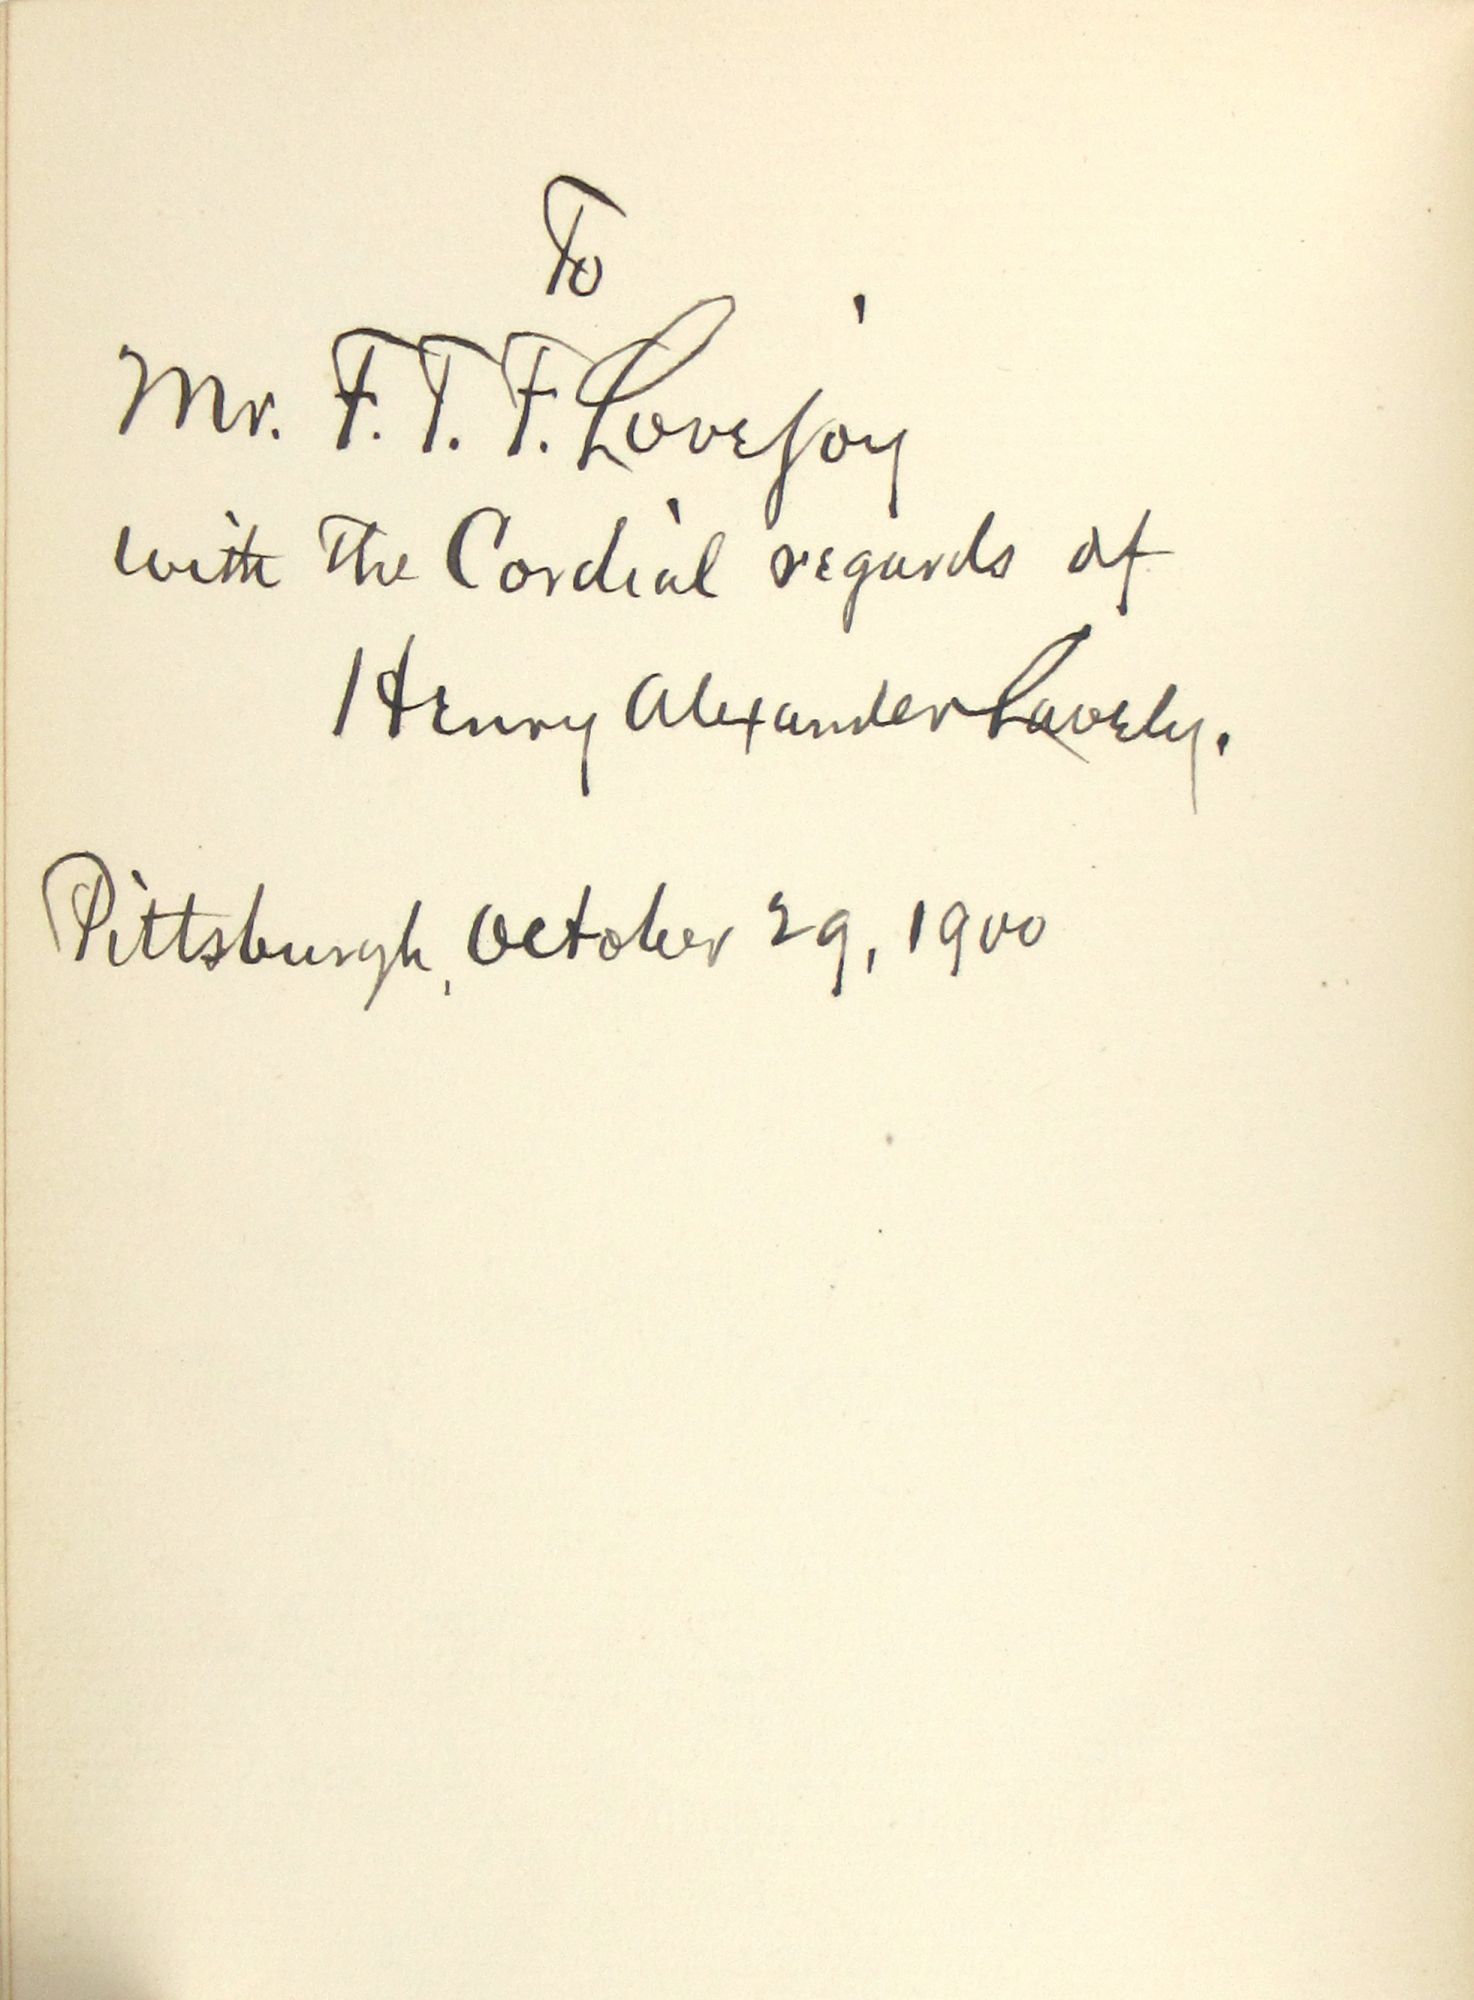 To
Mr. F. T. F. Lovejoy
with the Cordial regards of
Henry Alexander Lavely.
Pittsburgh, October 29, 1900